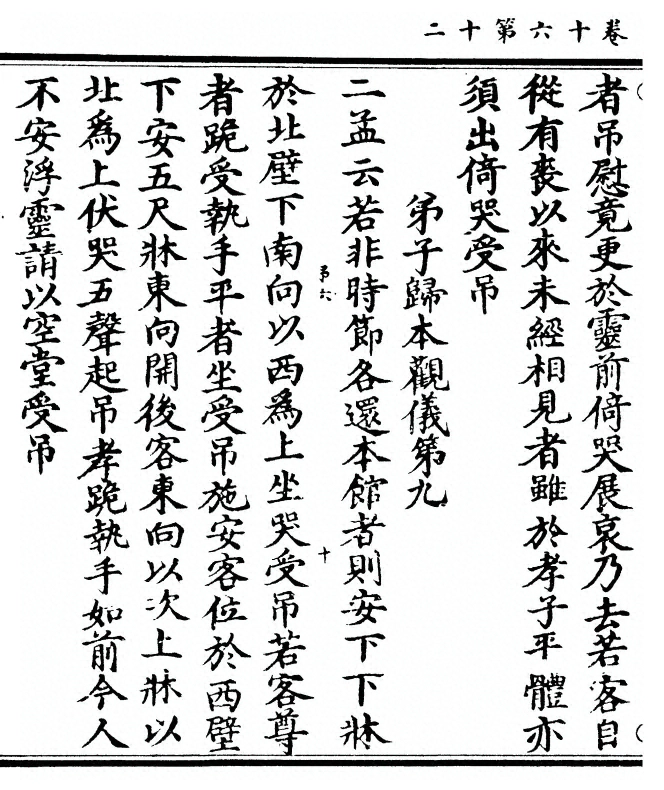 卷十六第十二
者吊慰竟更於靈前倚哭展哀乃去若客自
從有喪以來未經相見者雖於孝子平體亦
須出倚哭受吊
弟子歸本觀儀第九
二孟云若非時節各還本館者則安下下牀
於北壁下南向以西為上坐哭受吊若客尊
者跪受執手平者坐受吊施安客位於西壁
下安五尺牀東向開後客東向以次上牀以
北為上伏哭五聲起吊孝跪執手如前今人
不安浮靈請以空堂受吊